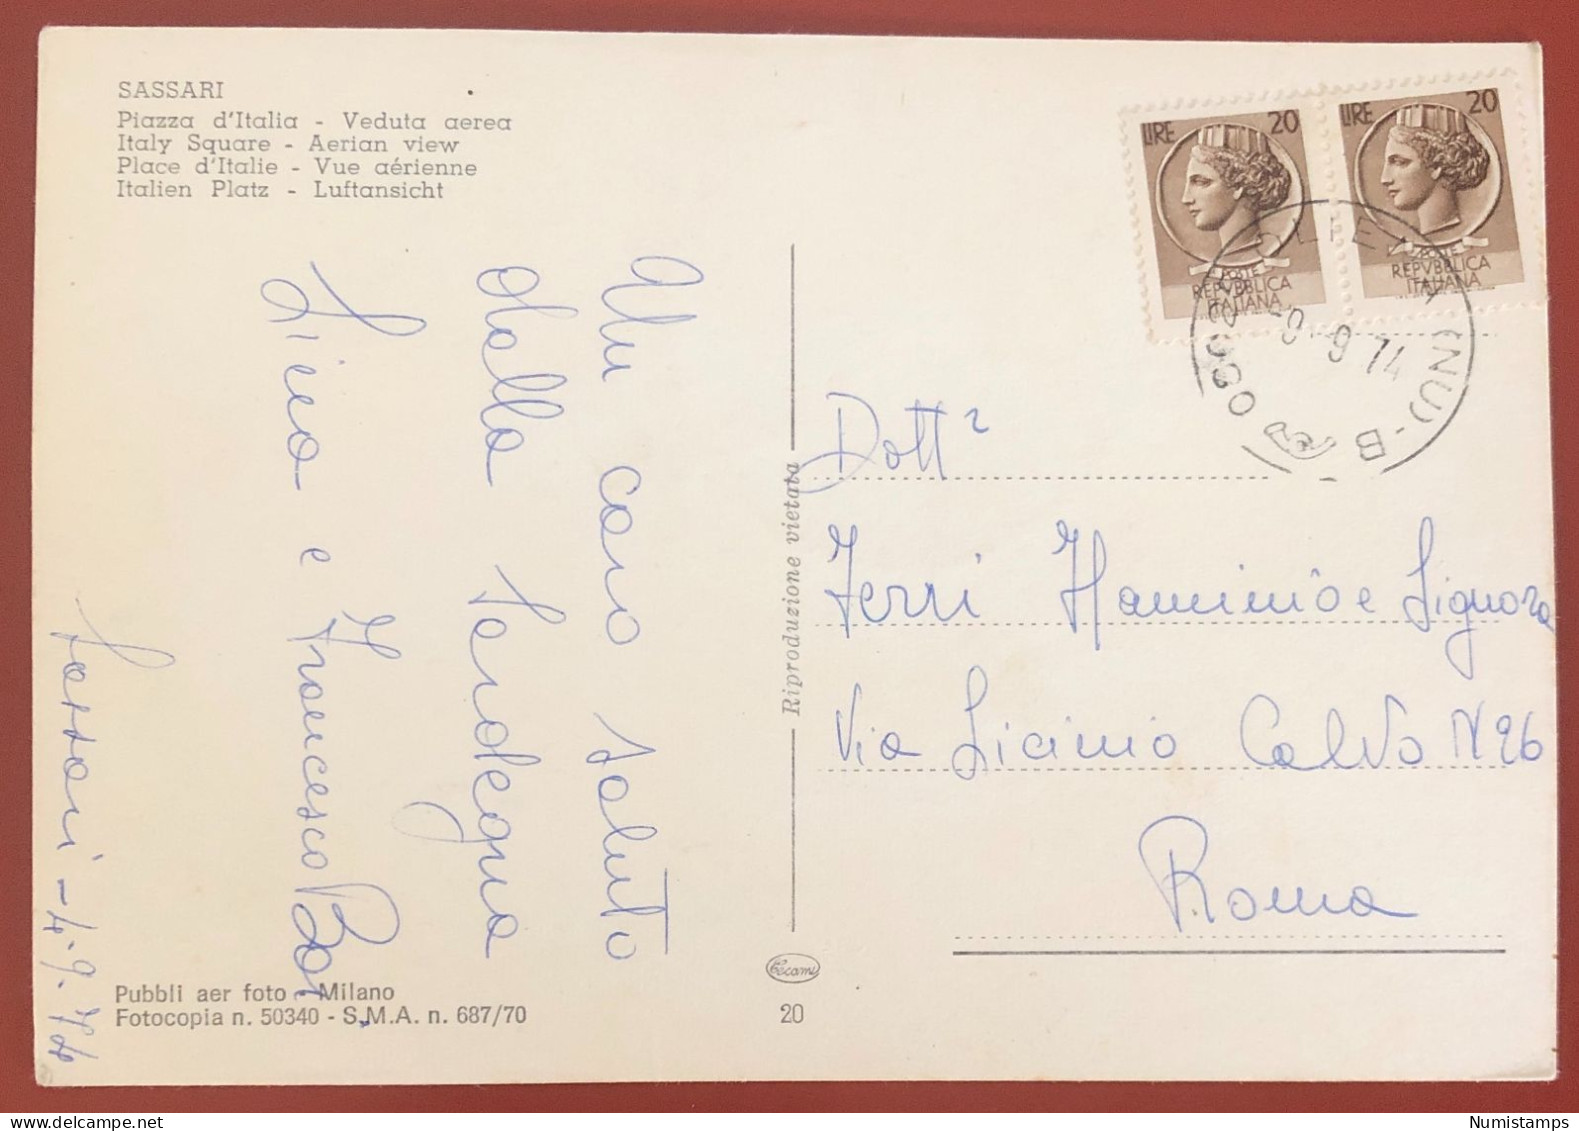 SASSARI
Piazza d'Italia - Veduta aerea
Italy Square - Aerian view
Place d'Italie - Vue aérienne
Italien Platz - Luftansicht
Un caro saluto
dalla Sardegna
e Francesco
Sassari - 4.9.74
Pubbli aer foto - Milano
Fotocopia n. 50340 - S.M.A. n. 687/70
Riproduzione vietata
Cecami
20
LIRE 20
POSTE
REPVBBLICA
ITALIANA
LIRE 20
POSTE
REPVBBLICA
ITALIANA
(NU) - B
9 74
Dott
Ferri e Signora
Via Licinio Calvo N 26
Roma
Numistamps